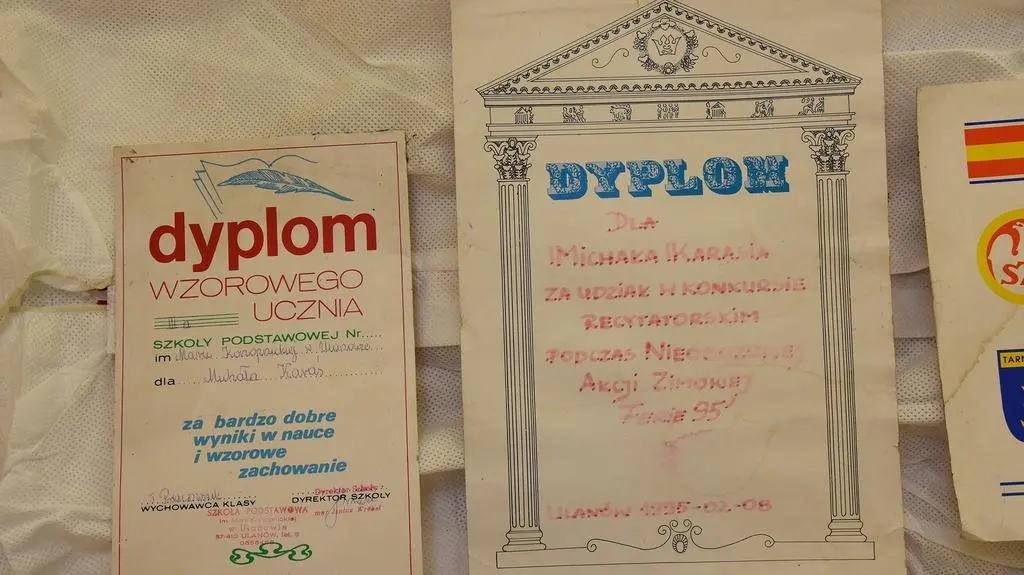 dyplom
WZOROWEGO
UCZNIA
II a
SZKOŁY PODSTAWOWEJ Nr.....
im Marii Konopnickiej w Ulanowie
dla Michała Karaś
za bardzo dobre
wyniki w nauce
i wzorowe
zachowanie
WYCHOWAWCA KLASY
Dyrektor Szkoły
DYREKTOR SZKOŁY
mgr Janina Wróbel
SZKOŁA PODSTAWOWA
im. Marii Konopnickiej
w Ulanowie
37-410 ULANÓW,
DYPLOM
DLA
MICHAŁA KARASIA
ZA UDZIAŁ W KONKURSIE
RECYTATORSKIM
PODCZAS NIEOBOZOWEJ
AKCJI ZIMOWEJ
FERIE 95'
ULANÓW 1995-02-08
TAR